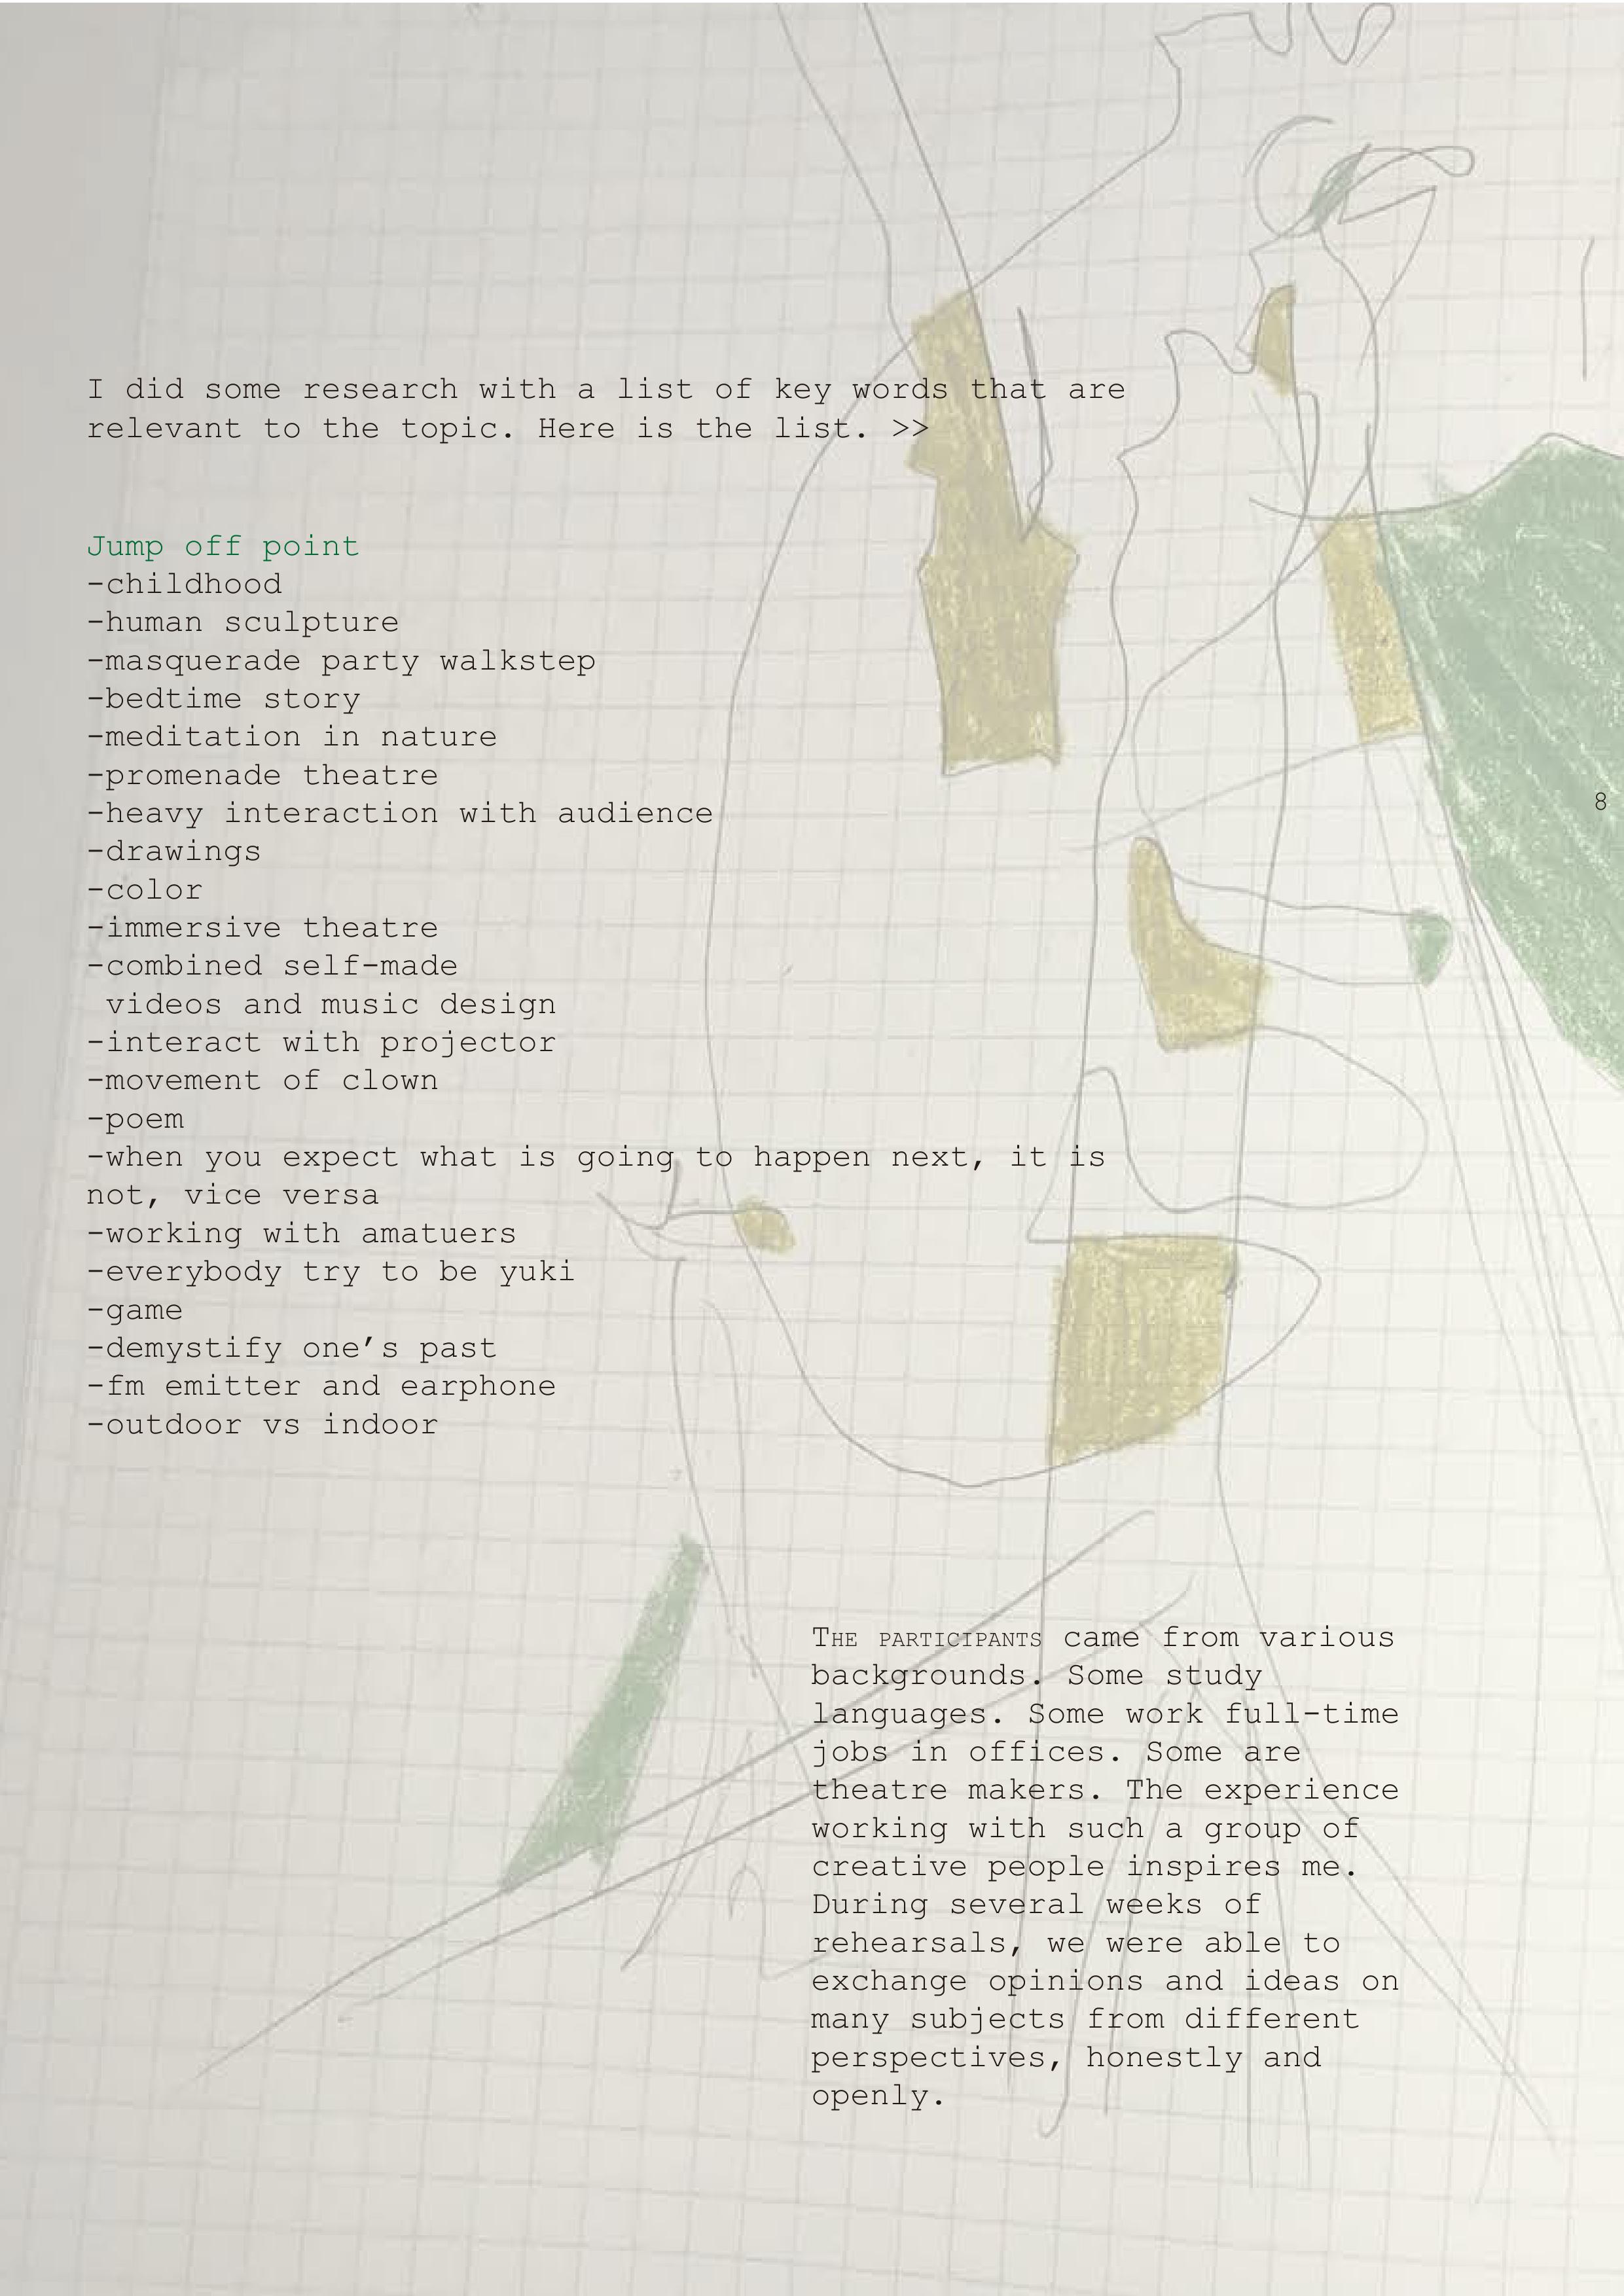 I did some research with a list of key words that are
relevant to the topic. Here is the list. >>
Jump off point
-childhood
-human sculpture
-masquerade party walkstep
-bedtime story
-meditation in nature
-promenade theatre
-heavy interaction with audience
-drawings
-color
-immersive theatre
-combined self-made
videos and music design
-interact with projector
-movement of clown
-poem
-when you expect what is going to happen next, it is
not, vice versa
-working with amatuers
-everybody try to be yuki
-game
-demystify one’s past
-fm emitter and earphone
-outdoor vs indoor
8
THE PARTICIPANTS came from various
backgrounds. Some study
languages. Some work full-time
jobs in offices. Some are
theatre makers. The experience
working with such a group of
creative people inspires me.
During several weeks of
rehearsals, we were able to
exchange opinions and ideas on
many subjects from different
perspectives, honestly and
openly.